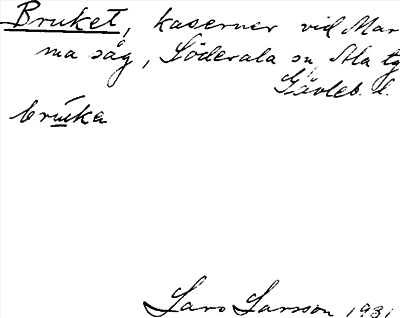 Bruket, kaserner vid Mar
ma såg, Söderala sn, Ala tg
Gävleb. l.
bruka
Lars Larsson 1931